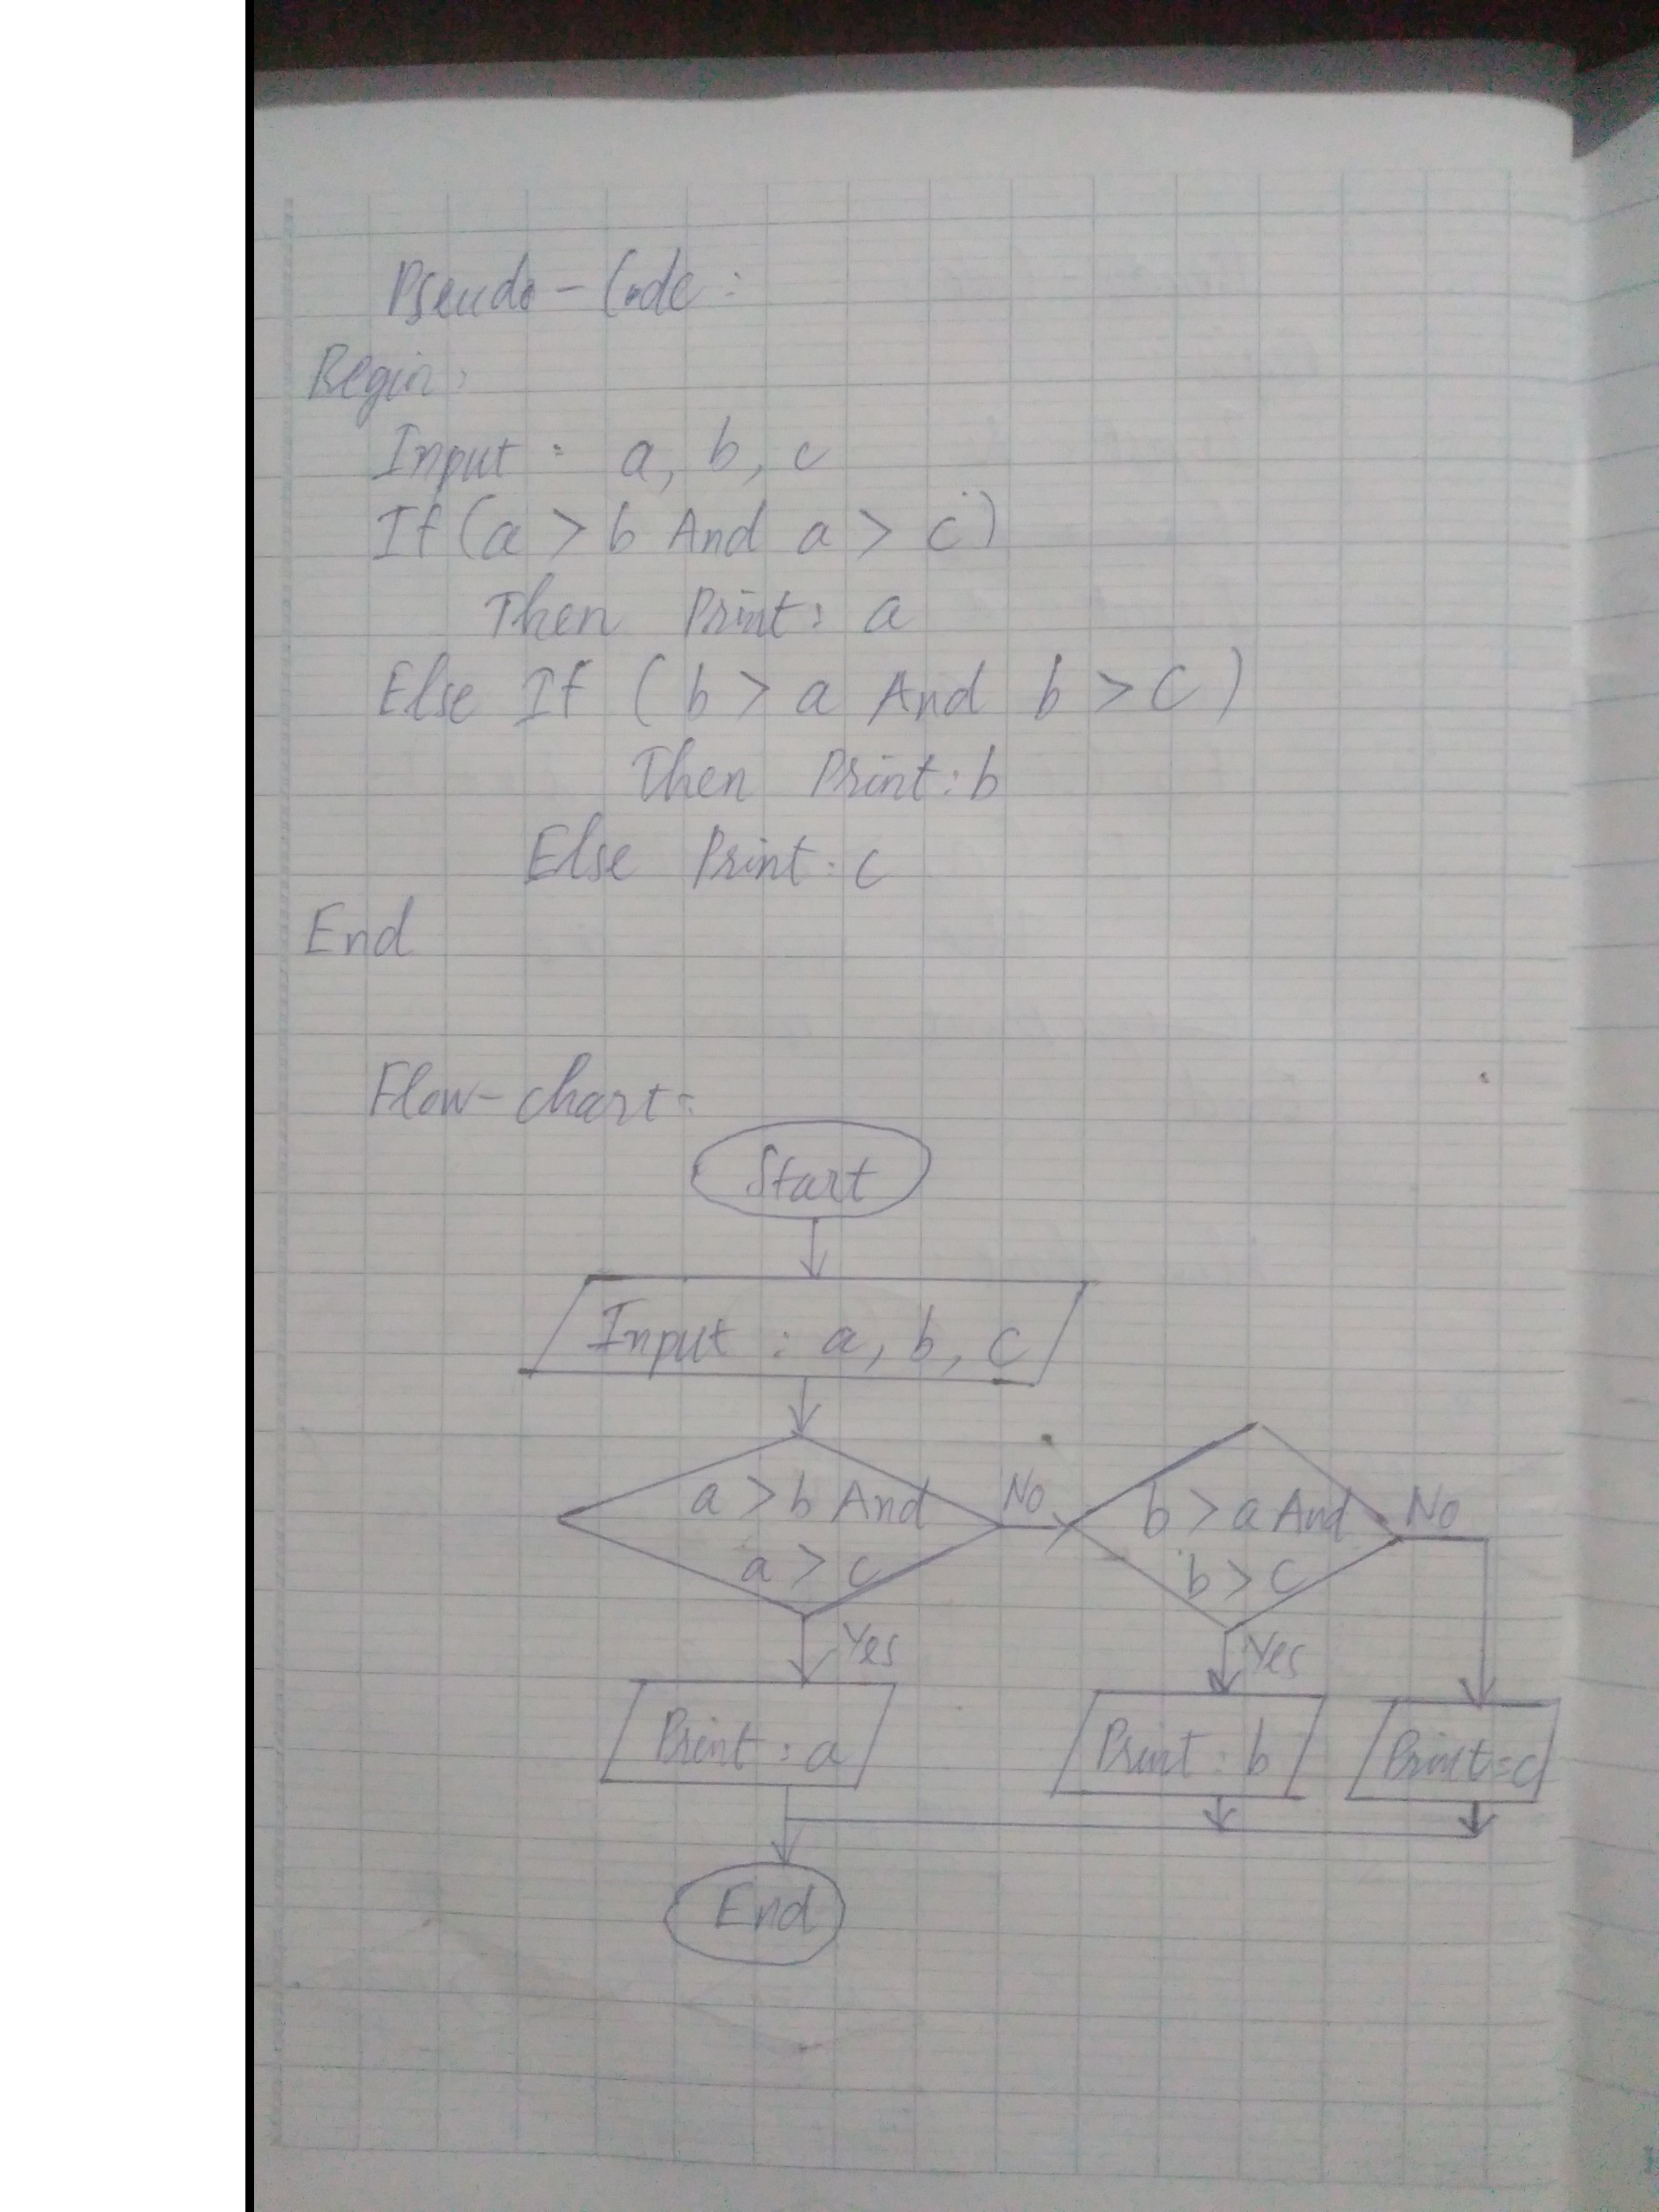 Pseudo-Code:
Begin:
Input : a, b, c
If (a > b And a > c)
Then Print: a
Else If (b > a And b > c)
Then Print: b
Else Print: c
End
Flow-chart:
Start
Input : a, b, c
a > b And
a > c
No
b > a And
b > c
No
Yes
Yes
Print : a
Print : b
Print = c
End